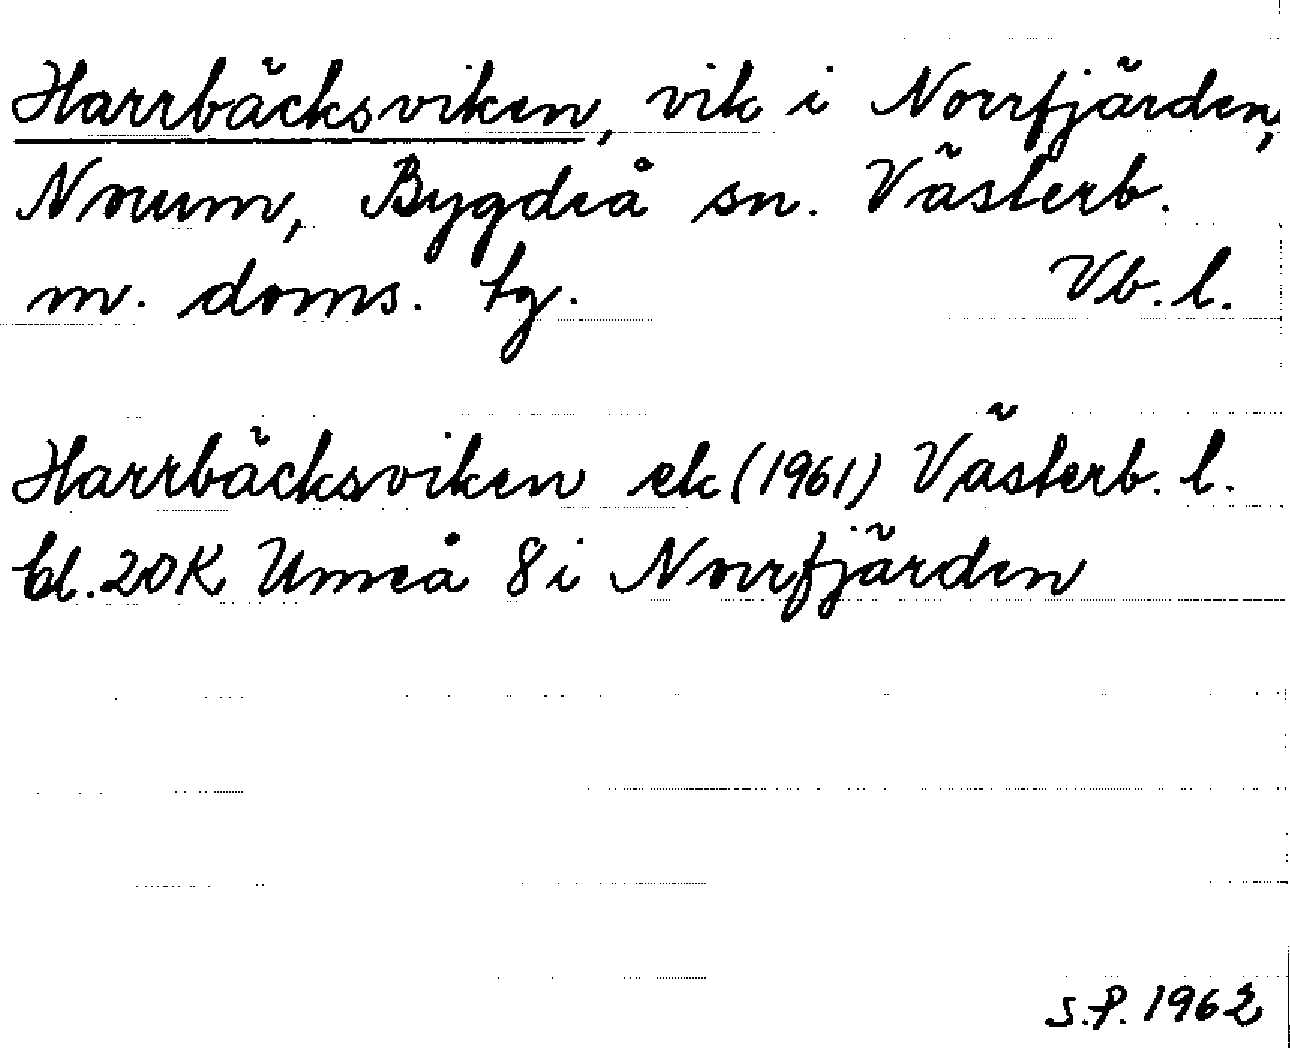 Harrbäcksviken, vik i Norrfjärden,
Norum, Bygdeå sn. Västerb.
m. doms. tg. Vb. l.
Harrbäcksviken ek (1961) Västerb. l.
bl. 20K Umeå 8 i Norrfjärden
S.P. 1962